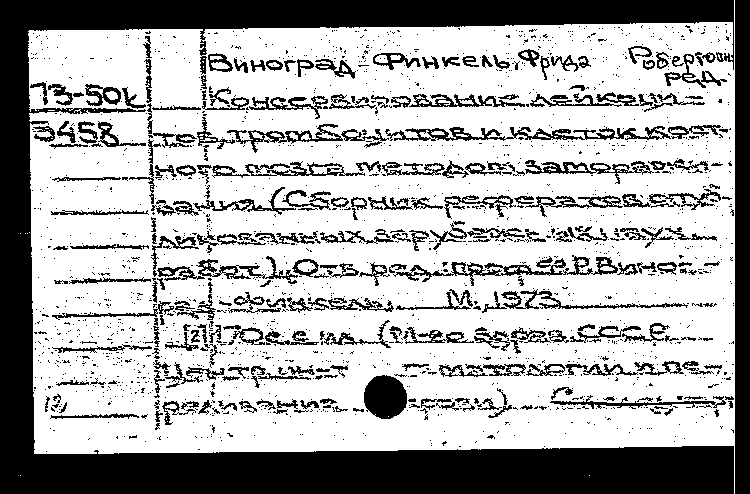 Виноград-Финкель, Фрида Робертовна
ред.
73-50k Консервирование лейкоци-
5458 тов, тромбоцитов и клеток кост-
ного мозга методом заморажи-
вания. (Сборник рефератов опуб-
ликованных зарубежных научн.
работ). Отв. ред.: проф. Ф.Р. Вино-
град-Финкель. М., 1973
[2] 170 с. с ил. (М-во здрав. СССР.
Центр. ин-т гематологии и пе-
12 реливания крови)